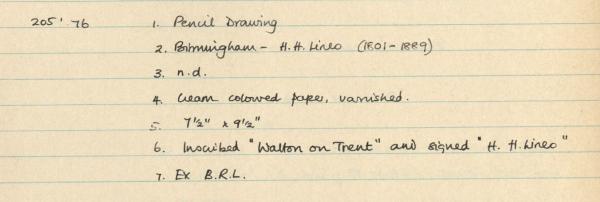 205' 76 1. Pencil Drawing
2. Birmingham - H.H. Lines (1801-1889)
3. n.d.
4. Cream coloured paper, varnished.
5. 7½" x 9½"
6. Inscribed "Walton on Trent" and signed "H. H. Lines"
7. Ex B.R.L.